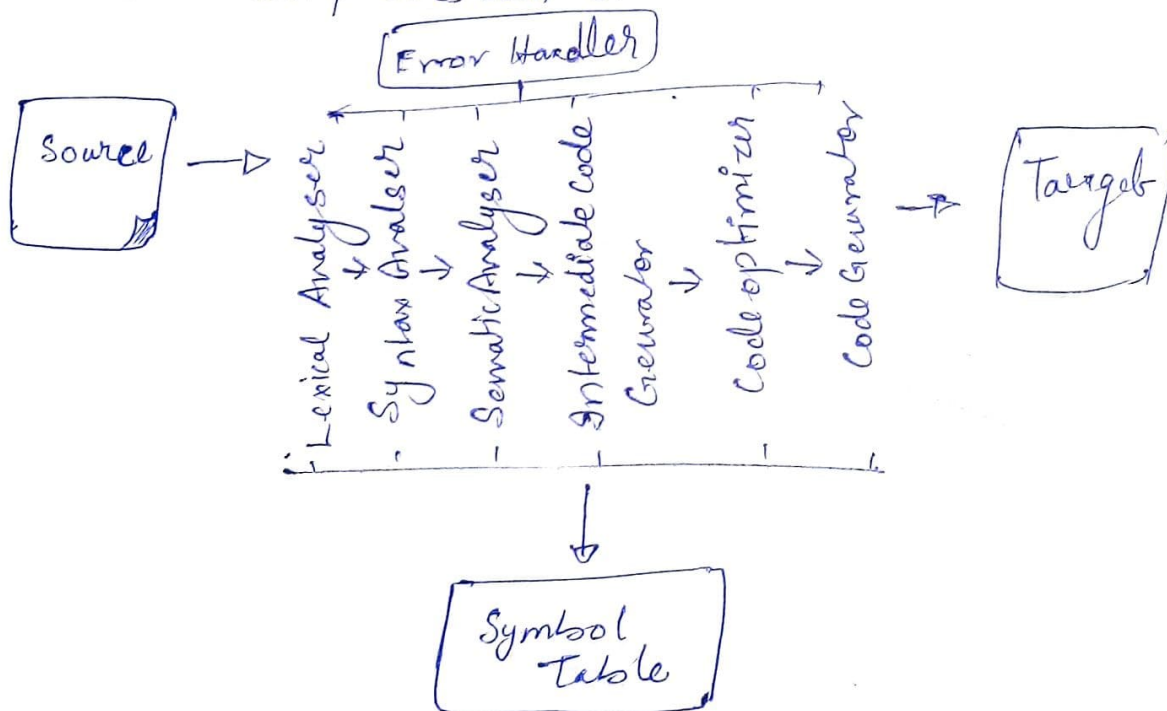 Error Handler
Source
Lexical Analyser
Syntax Analser
Sematic Analyser
Intermediate Code
Generator
Code optimizer
Code Generator
Target
Symbol
Table